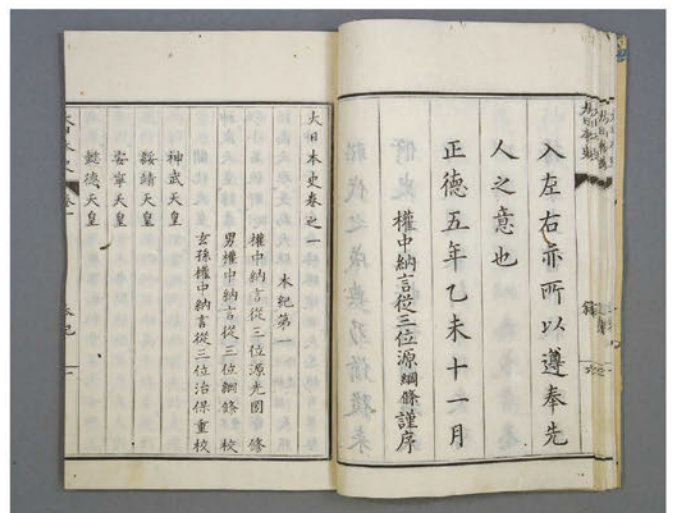 入左右亦所以遵奉先
人之意也
正德五年乙未十一月
權中納言從三位源綱條謹序
大日本史卷之一
本紀第一
權中納言從三位源光圀 修
男權中納言從三位綱條 校
玄孫權中納言從三位治保重校
神武天皇
綏靖天皇
安寧天皇
懿德天皇
大日本史 卷一 本紀 一